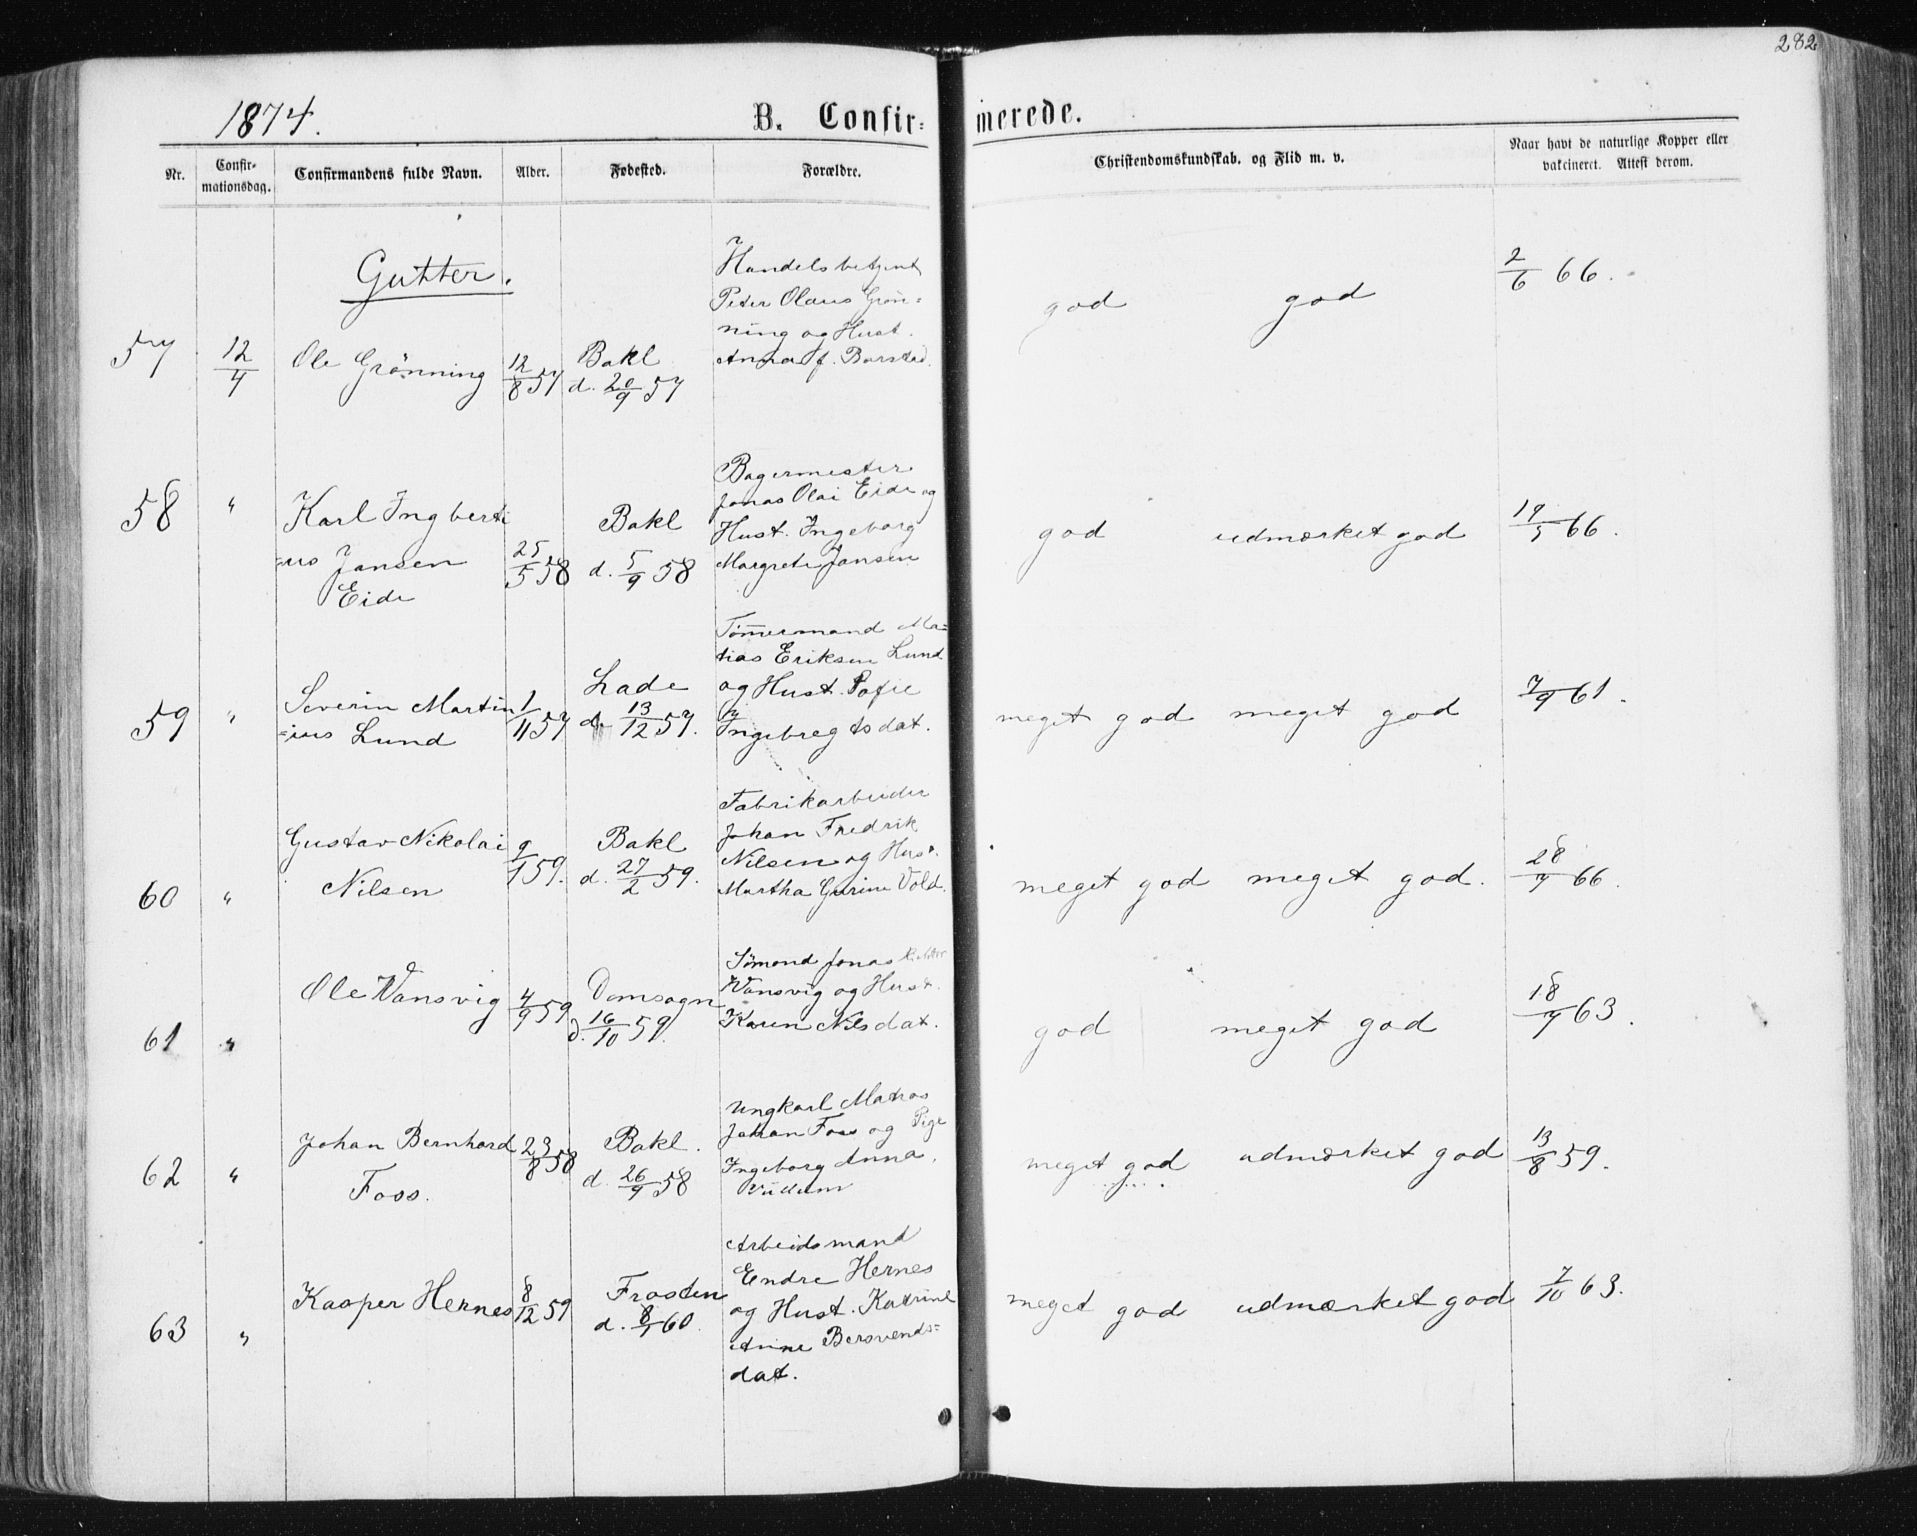 282
1874.
B. Confirmerede.
Nr.
Confirmationsdag.
Confirmandens fulde Navn.
Alder.
Fødested.
Forældre.
Christendomskundskab. og Flid m. v.
Naar havt de naturlige Kopper eller
vakcineret. Attest derom.
Gutter.
57 12/4 Ole Grönning 12/8 57 Bakl
d. 20/9 57
Handelsbetjent
Peter Olaus Grön=
ning og Hust.
Anna f. Barstad.
god god 2/6 66.
58 " Karl Ingberti
=us Jansen
Eide
25/5 58 Bakl
d. 5/9 58
Bagermester
Jonas Olai Eide og
Hust. Ingeborg
Margrete Jansen
god udmærket god 19/5 66.
59 " Severin Martin
=ius Lund
1/11 57 Lade
d. 13/12 57.
Tömmermand Ma=
tias Eriksen Lund
og Hust. Sofie
Ingebregtsdat.
meget god meget god 7/9 61.
60 " Gustav Nikolai
Nilsen
9/1 59. Bakl
d. 27/2 59.
Fabrikarbeider
Johan Fredrik
Nilsen og Hust.
Martha Gurine Vold.
meget god meget god. 28/7 66.
61 " Ole Vansvig 4/9 59 Domsogn
d. 16/10 59.
Sömand Jonas
Vansvig og Hust.
Karen Nilsdat.
god meget god 18/7 63.
62 " Johan Bernhard
Foss.
23/8 58 Bakl.
d. 26/9 58
Ungkarl Matros
Johan Foss og Pige
Ingeborg Anna
meget god udmærket god 13/8 59.
63 " Kasper Hernes 8/12 59 Frosten
d. 8/1 60.
Arbeidsmand
Endre Hernes
og Hust. Katrine
Anne Bersvends=
dat.
meget god udmærket god 7/10 63.